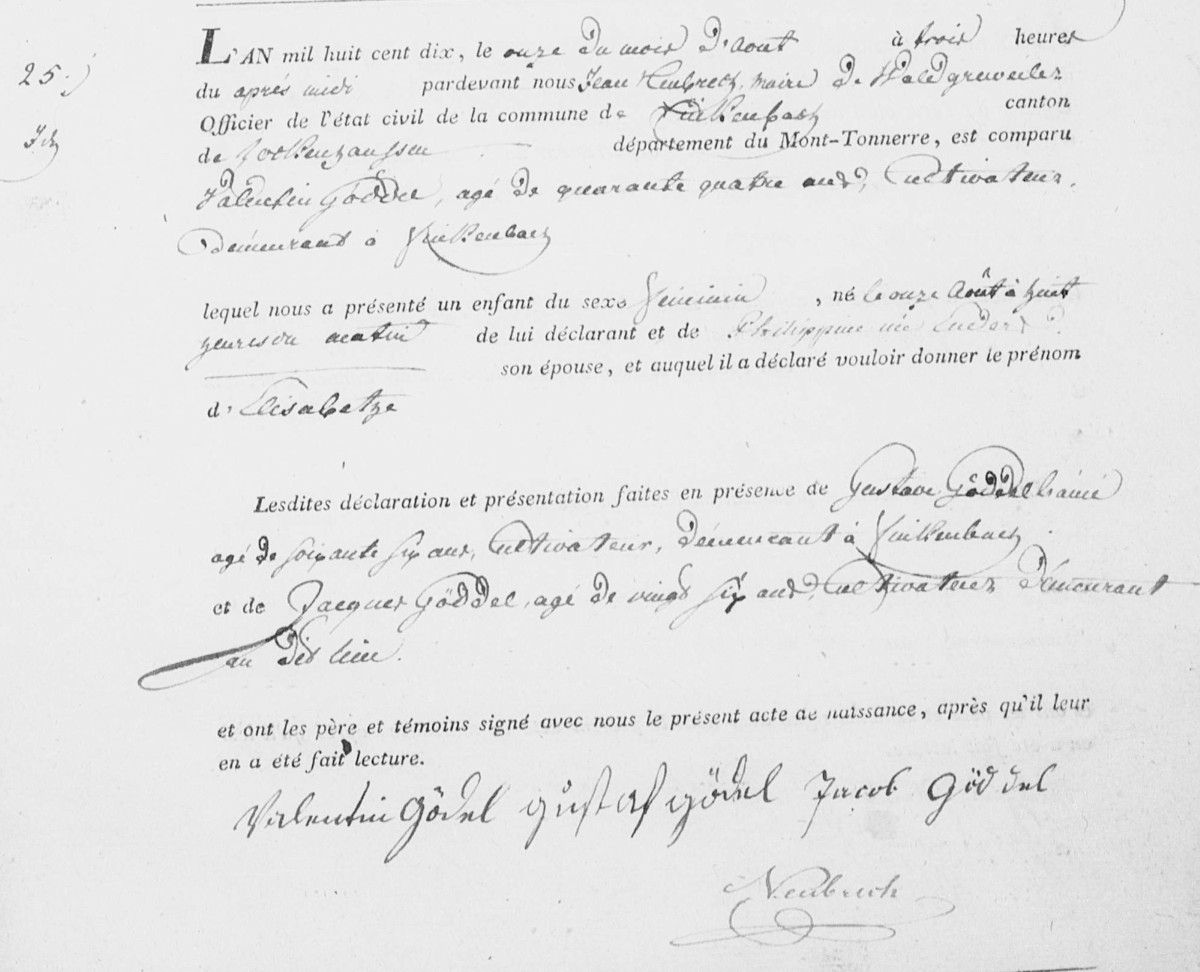 25.)
L'AN mil huit cent dix, le onze du mois d'Aout à trois heures
du aprés midi pardevant nous Jean Neubrech, maire de Waldgreweiler
Officier de l'état civil de la commune de Finkenbach canton
de Rockenhaussen département du Mont-Tonnerre, est comparu
Valentin Göddel, agé de quarante quatre ans, Cultivateur,
Démeurant à Finkenbach
lequel nous a présenté un enfant du sexe féminin, né le onze Août à huit
heures du matin de lui déclarant et de Philippine née
son épouse, et auquel il a déclaré vouloir donner le prénom
d'Elisabethe
Lesdites déclaration et présentation faites en présence de Gustave Göddel l'ainé
agé de soixante six ans, Cultivateur, Démeurant à Finkenbach
et de Jacques Göddel, agé de vingt six ans, Cultivateur Démeurant
au dit lieu.
et ont les père et témoins signé avec nous le présent acte de naissance, après qu'il leur
en a été fait lecture.
Valentin Gödel Gustaf Gödel Jacob Göddel
Neubrech